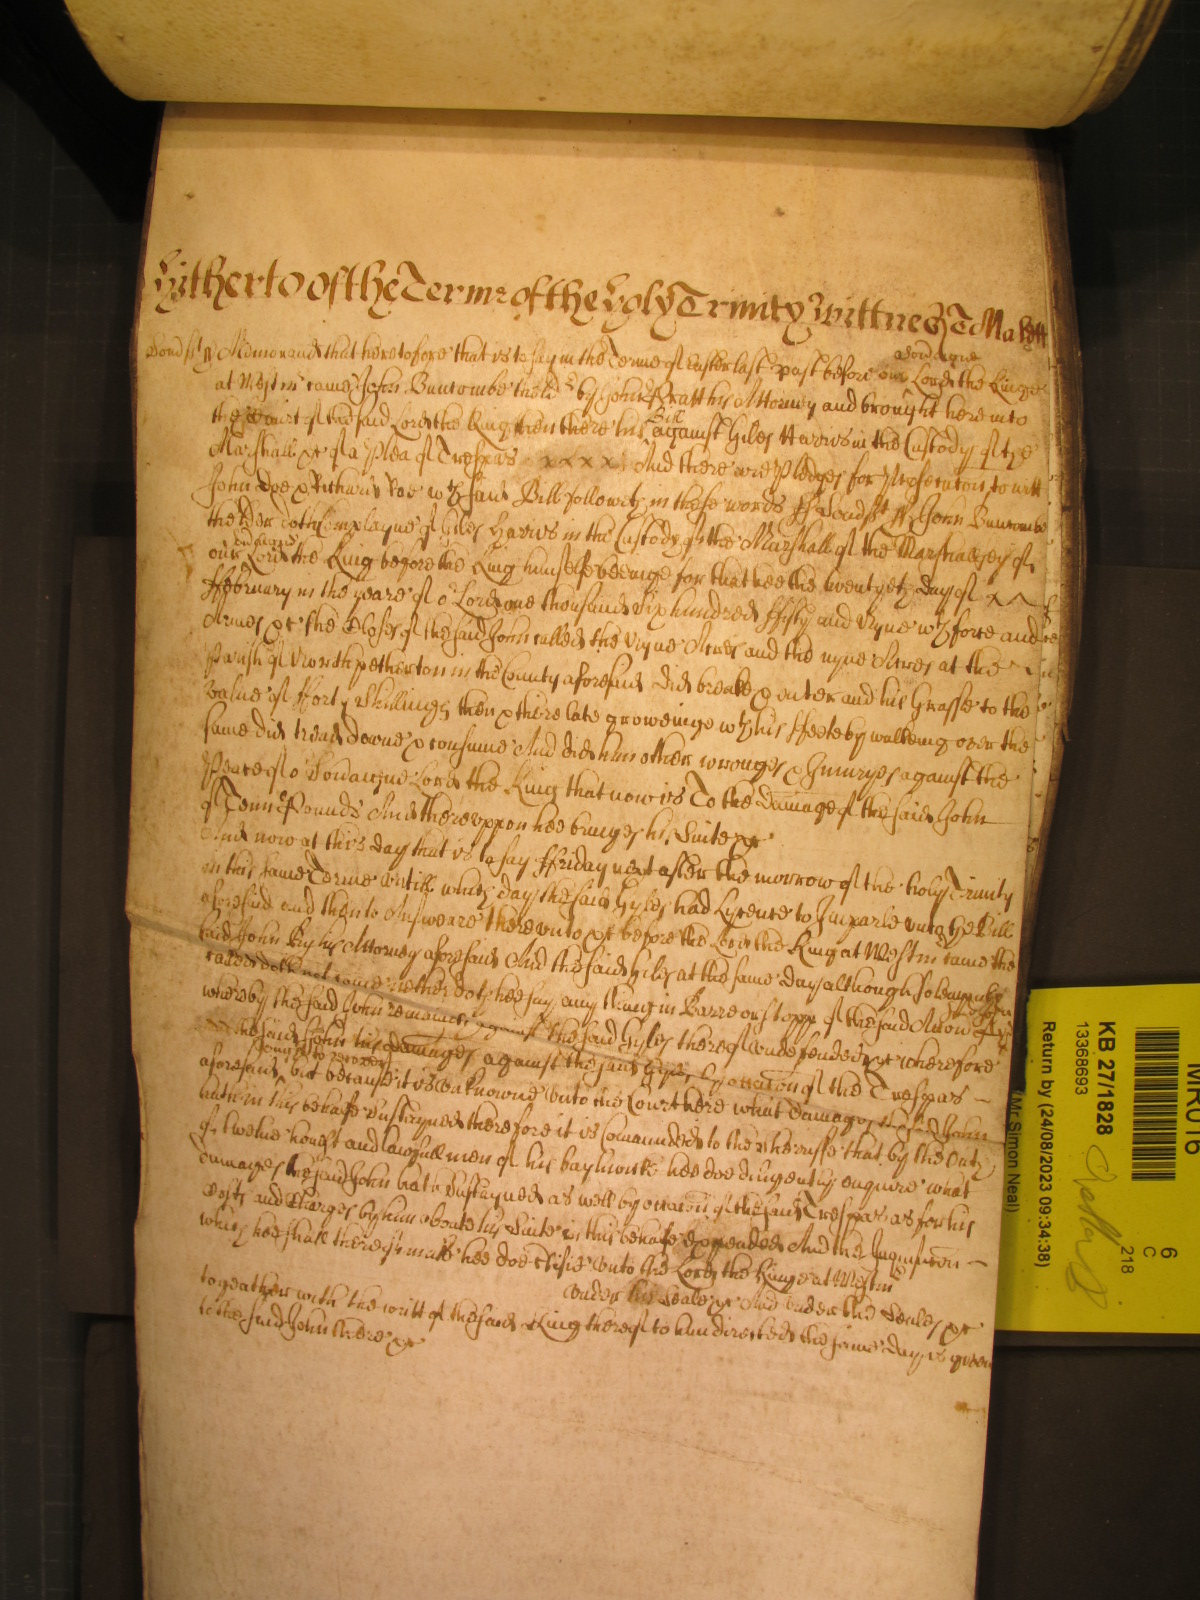 Hitherto of the Terme of the holy Trinity Wittnes T Mallett
Somst ss Memorand that heretofore that is to say in the Terme of Easter last past before our Soveraigne Lord the Kinge
at Westm came John Buncombe the elder by John Pratt his Attorney and brought here into
the Court of the said Lord the King then there his Bill against Giles Harris in the Custody of the
Marshall &c of a Plea of Trespas x x x x And there are Pledges for Prosecution to witt
John Doe & Richard Roe wch said Bill followeth in these words ss Somst ss John Buncombe
the elder doth Complayne of Giles Harris in the Custody of the Marshall of the Marshallsey of
our Soveraigne Lord the King before the King himselfe beeinge for that hee the twentyeth day of
ffebruary in the yeare of or Lord one thousand six hundred fifty and nyne wth force and
Armes &c the Closes of the said John called the Nyne Acres and the nyne Acres at the
Parish of Northpetherton in the County aforesaid did breake & enter and his Grasse to the
value of fforty Shillings then & there late groweinge wth his ffeete by walkeing over the
same did tread downe & consume And did him other wronges & Iniuryes against the
Peace of or Soveraigne Lord the King that now is To the Damage of the said John
of Tenn Pounds And thereuppon hee bringes his Suite &c
And now at this day that is to say ffriday next after the morrow of the holy Trinity
in this same Terme untill which day the said Gyles had Lycence to Imparle unto the Bill
aforesaid and then to Answeare thereunto &c before the Lord the King at Westm came the
said John by his Attorney aforesaid And the said Giles at the same day although solempnly
called doth not come nether doth hee say any thing in Barre or stopp of the said Accion of the said John
whereby the said John remaines against the said Gyles thereof undefended &c Wherefore
the said John his damages against the said Gyles by occacion of the Trespas
aforesaid ought to recover but because it is unknowne unto the Court here what damages the said John
hath in this behalfe sustayned therefore it is Comaunded to the Sheriffe that by the oath
of twelve honest and lawfull men of his baylywick hee doe diligently enquire what
damages the said John hath sustayned as well by occacion of the said Trespas as for his
Costs and Charges by him about his Suite in this behalfe expended And the Inquisicion
which hee shall thereof make hee doe Certifie unto the Lord the Kinge at Westm
under his Seale &c And under the Seales &c
togeather with the writt of the said King thereof to him directed the same day is given
to the said John there &c
MR016
6
C
218
KB 27/1828
13368693
Return by (24/08/2023 09:34:38)
(Mr Simon Neal)